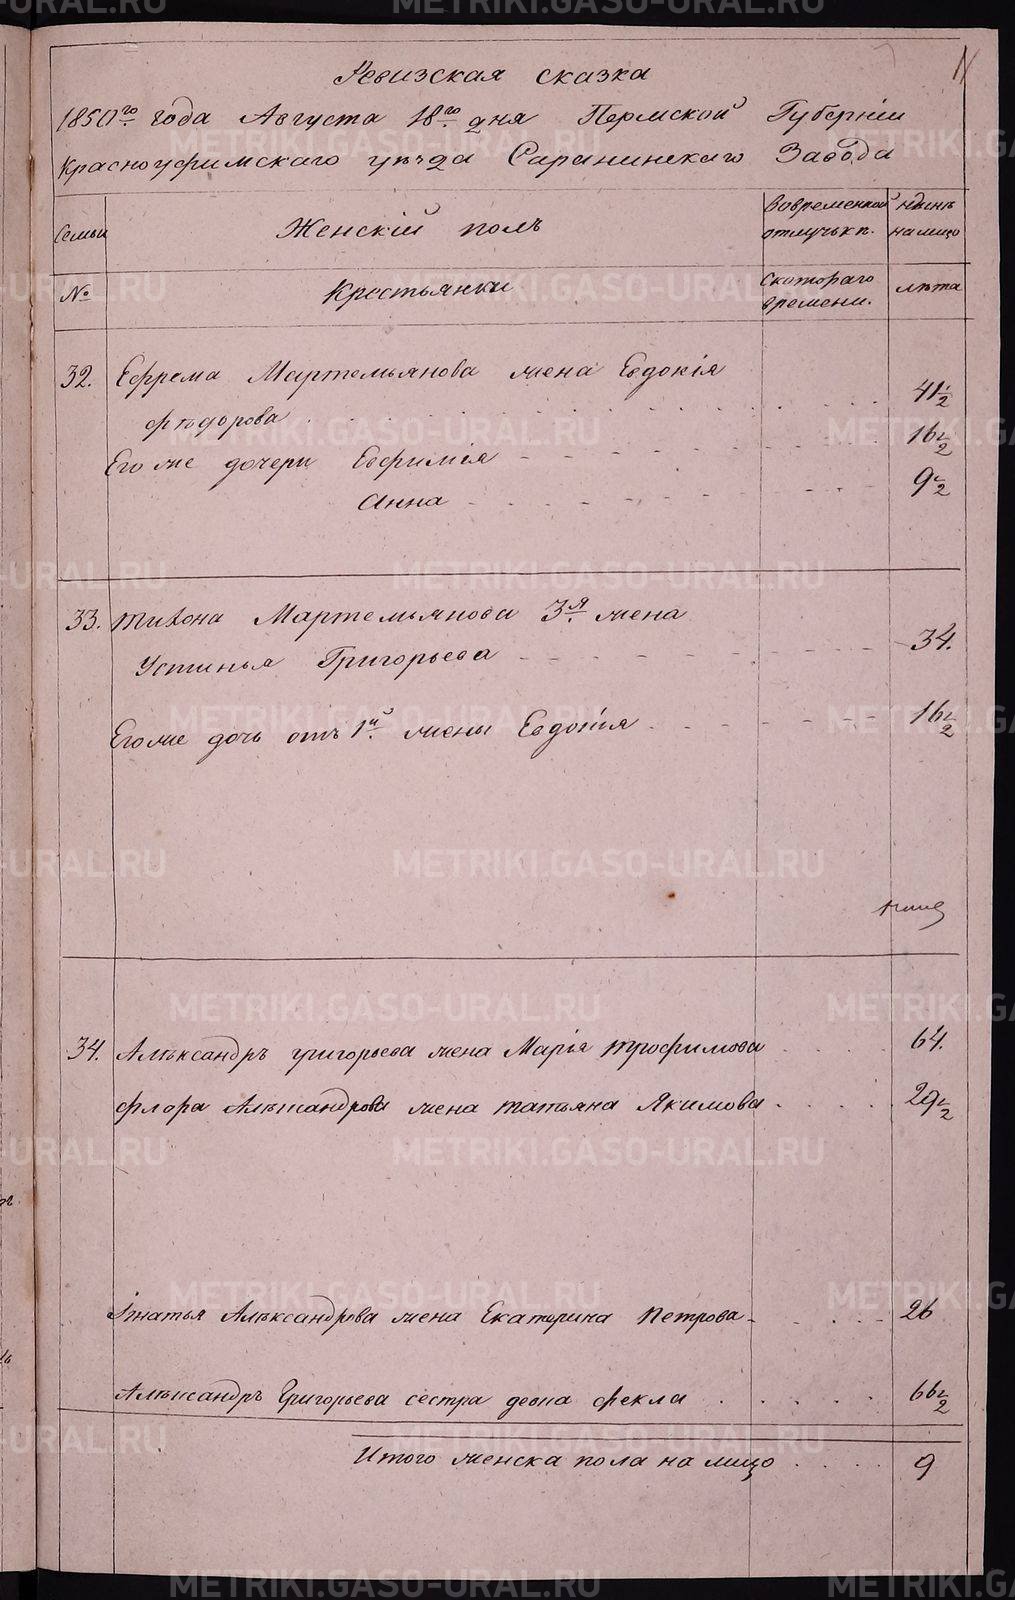 Ревизская сказка
1850го года Августа 18го дня Пермской Губернiи
Красноуфимскаго уѣзда Саранинскаго Завода
Семьи
Женскiй полъ
Вовременной отлучьки.
нынѣ на лицо
№
Крестьянки
Скотораго времени.
лѣта
32. Ефрема Мартемьянова жена Евдокiя
Фтодорова 41½
Его же дочери Евфимiя 16½
Анна 9½
33. Тихона Мартемьянова 3я жена
Устинья Григорьева 34.
Его же дочь отъ 1й жены Евдокiя 16½
34. Алѣксандръ григорьева жена Марiя трофимова 64.
флора Алѣксандрова жена татьяна Якимова 29½
Iгнатья Алѣксандрова жена Екатерина Петрова 26
Алѣксандръ Григорьева сестра девка фекла 66½
Итого женска пола на лицо 9
METRIKI.GASO-URAL.RU